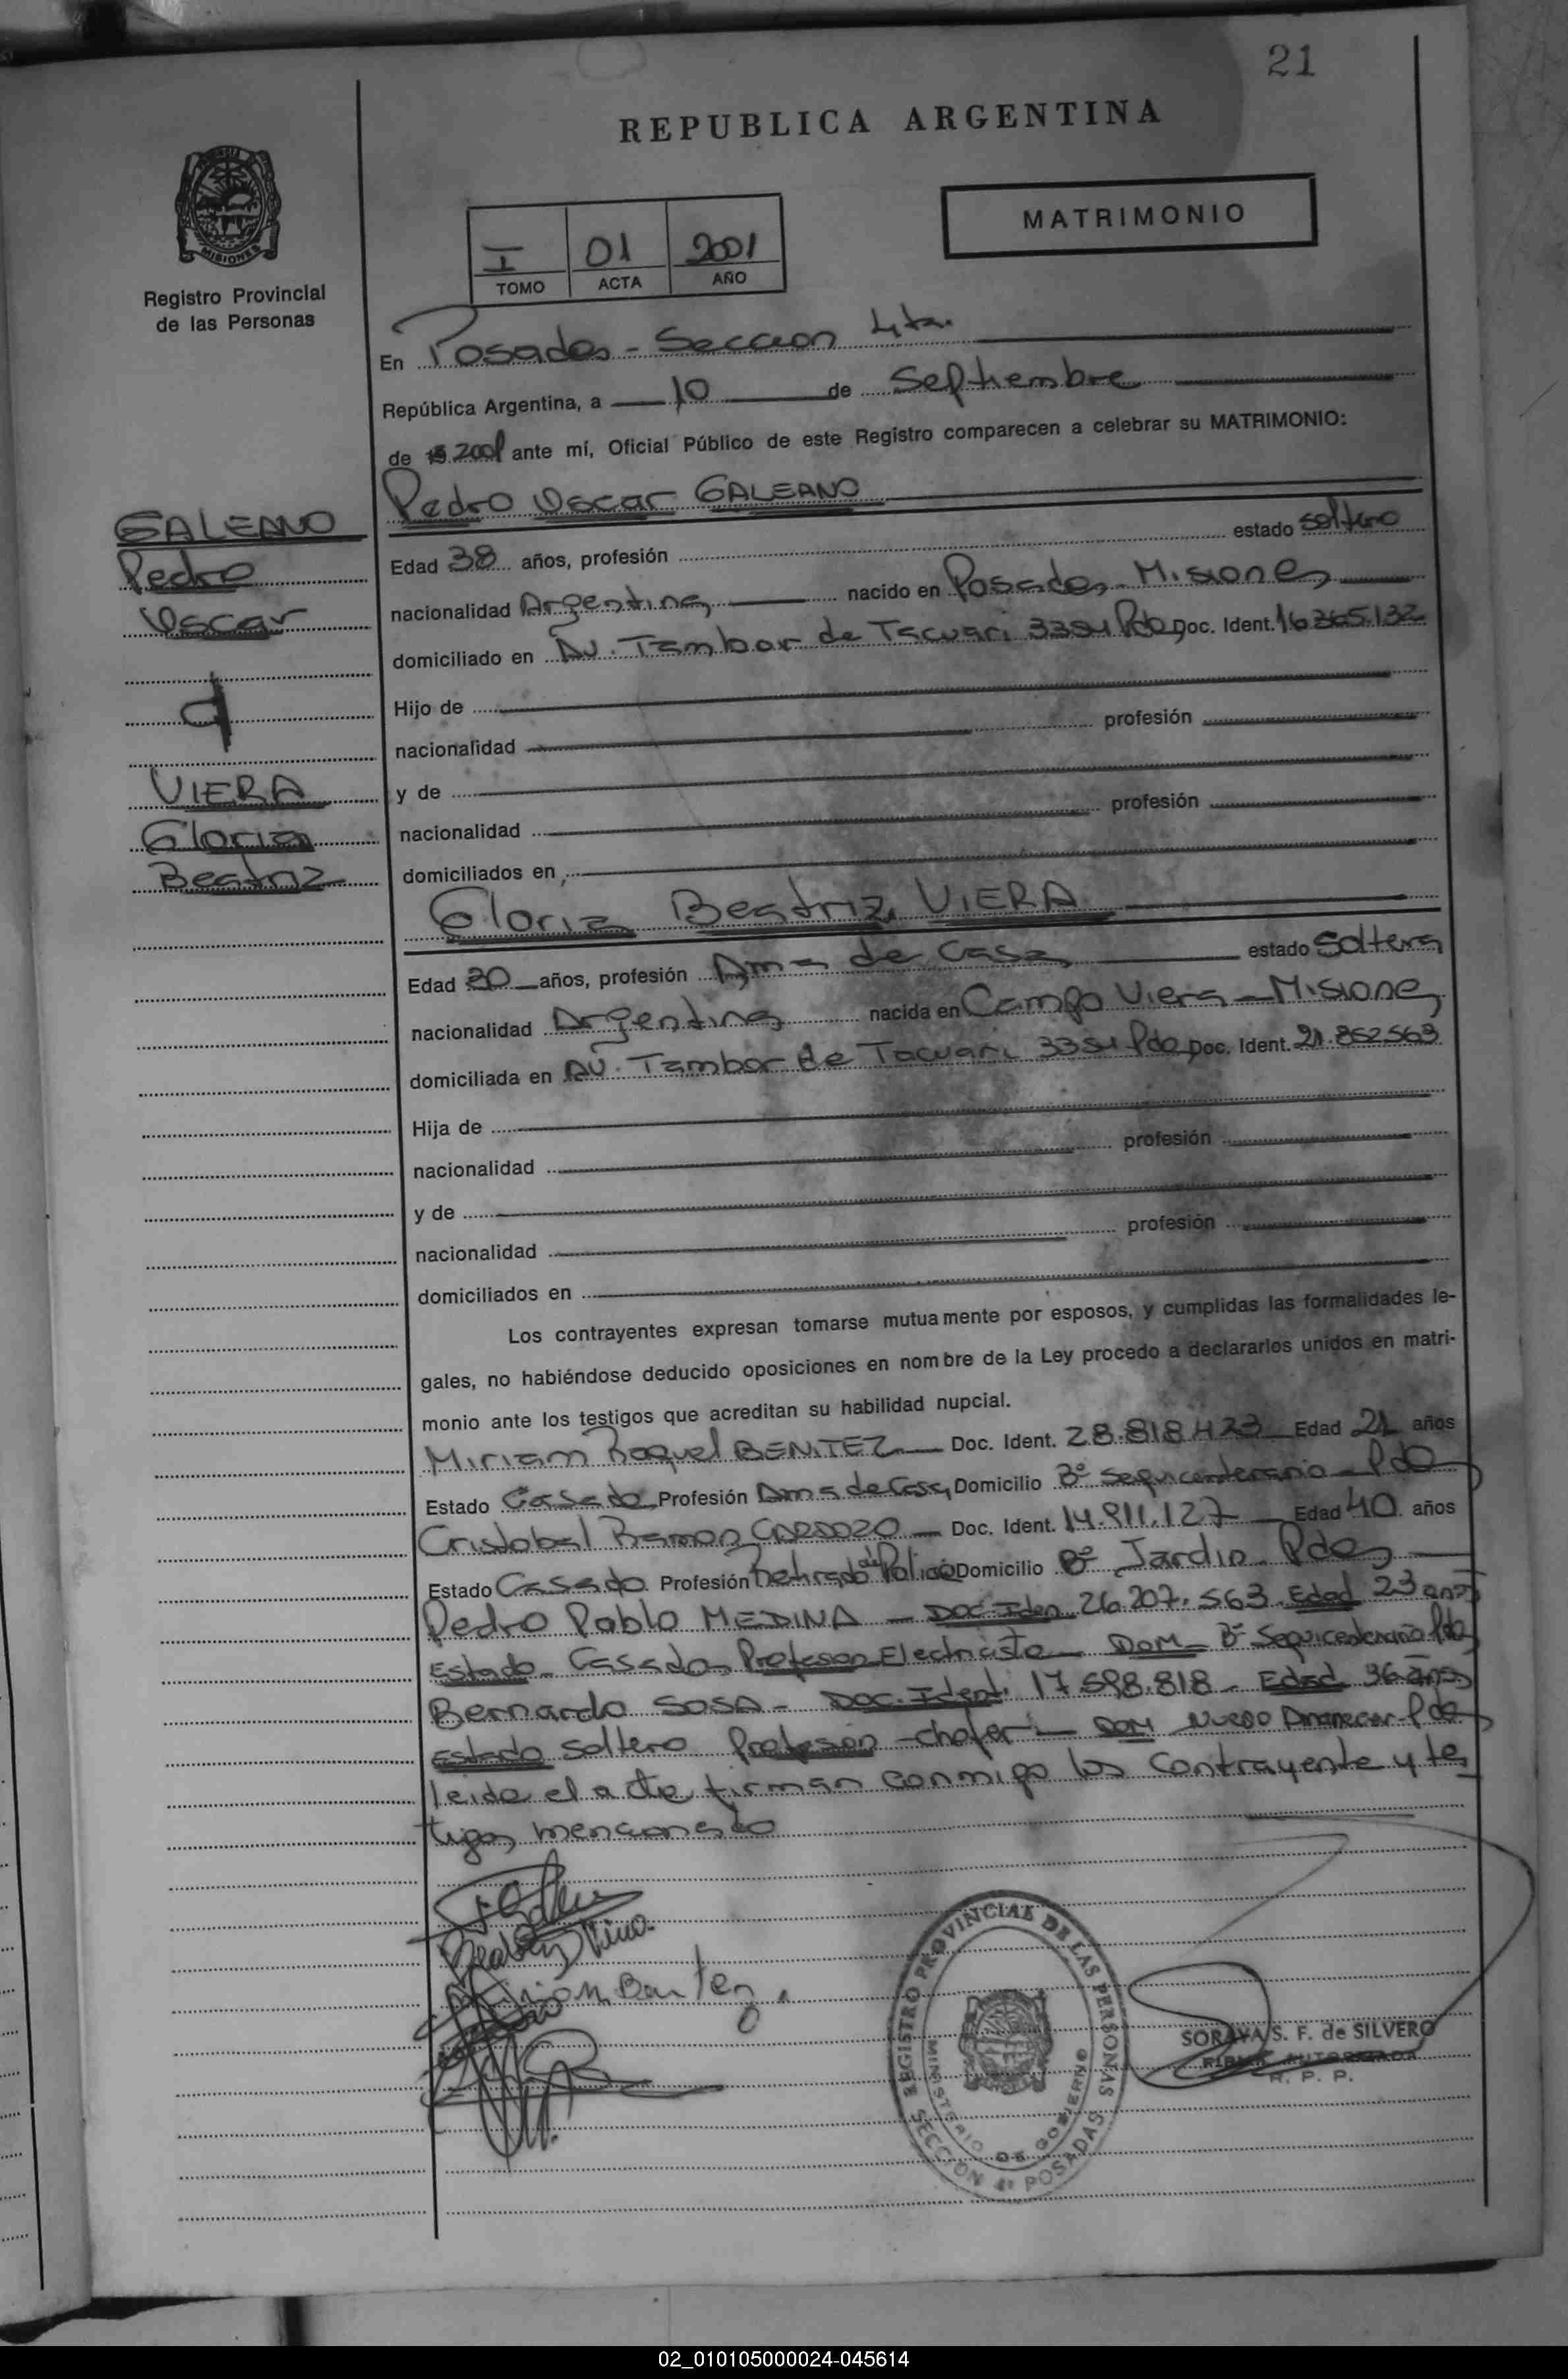 21
REPUBLICA ARGENTINA
MISIONES
Registro Provincial
de las Personas
I 01 2001
TOMO ACTA AÑO
MATRIMONIO
En Posadas - Seccion 4ta.
República Argentina, a 10 de Septiembre
de 2001 ante mí, Oficial Público de este Registro comparecen a celebrar su MATRIMONIO:
GALEANO
Pedro
Oscar
VIERA
Gloria
Beatriz
Pedro Oscar GALEANO
Edad 38 años, profesión estado soltero
nacionalidad Argentina nacido en Posadas - Misiones
domiciliado en AV. Tambor de Tacuari Pdas Doc. Ident. 16.365.132
Hijo de
nacionalidad profesión
y de
nacionalidad profesión
domiciliados en
Gloria Beatriz VIERA
Edad 30 años, profesión Ama de Casa estado Soltera
nacionalidad Argentina nacida en Campo Viera - Misiones
domiciliada en AV. Tambor de Tacuari Pdas Doc. Ident. 21.852.563
Hija de
nacionalidad profesión
y de
nacionalidad profesión
domiciliados en
Los contrayentes expresan tomarse mutuamente por esposos, y cumplidas las formalidades le-
gales, no habiéndose deducido oposiciones en nombre de la Ley procedo a declararlos unidos en matri-
monio ante los testigos que acreditan su habilidad nupcial.
Miriam Raquel BENITEZ Doc. Ident. 28.818.423 Edad 21 años
Estado Casado Profesión Ama de Casa Domicilio Bº Sequicentenario - Pdas
Cristobal Ramon CARDOZO - Doc. Ident. 14.911.127 - Edad 40 años
Estado Casado Profesión Retirado de Policia Domicilio Bº Jardin - Pdas
Pedro Pablo MEDINA - Doc Iden 26.207.563. Edad 23 años
Estado - Casado Profesion Electricista - DOM - Bº Sequicentenario Pdas
Bernardo SOSA - Doc. Ident. 17.598.818 - Edad 36 años
Estado Soltero Profesion - chofer - DOM Nuevo Amanecer - Pdas
leida el acta firman conmigo los contrayente y tes
tigos mencionado
Miriam Benitez
REGISTRO PROVINCIAL DE LAS PERSONAS
MINISTERIO DE GOBIERNO
SECCION 4ª POSADAS
SORAYA S. F. de SILVERO
FIRMA AUTORIZADA
R. P. P.
02_010105000024-045614